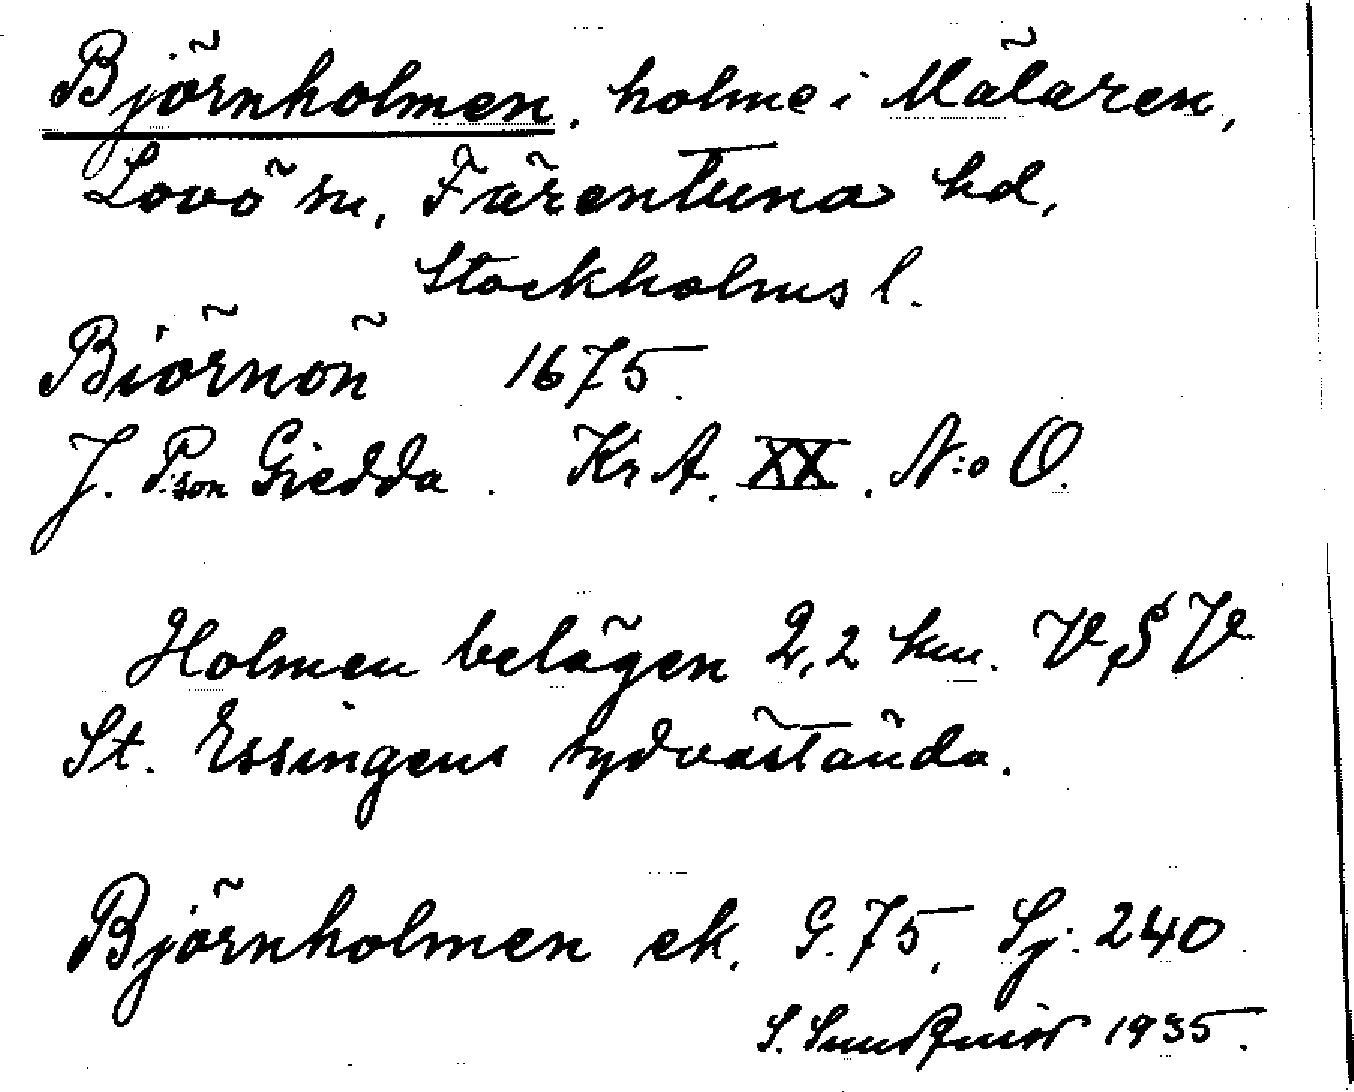 Björnholmen, holme i Mälaren,
Lovö sn, Färentuna hd,
Stockholms l.
Biörnön 1675.
J. P:son Giedda. Kr A. XX. N:o O.
Holmen belägen 2,2 km. V§V
St. Essingens sydvästända.
Björnholmen ek. G. 75, Sj. 240
S. Sundqvist 1935.